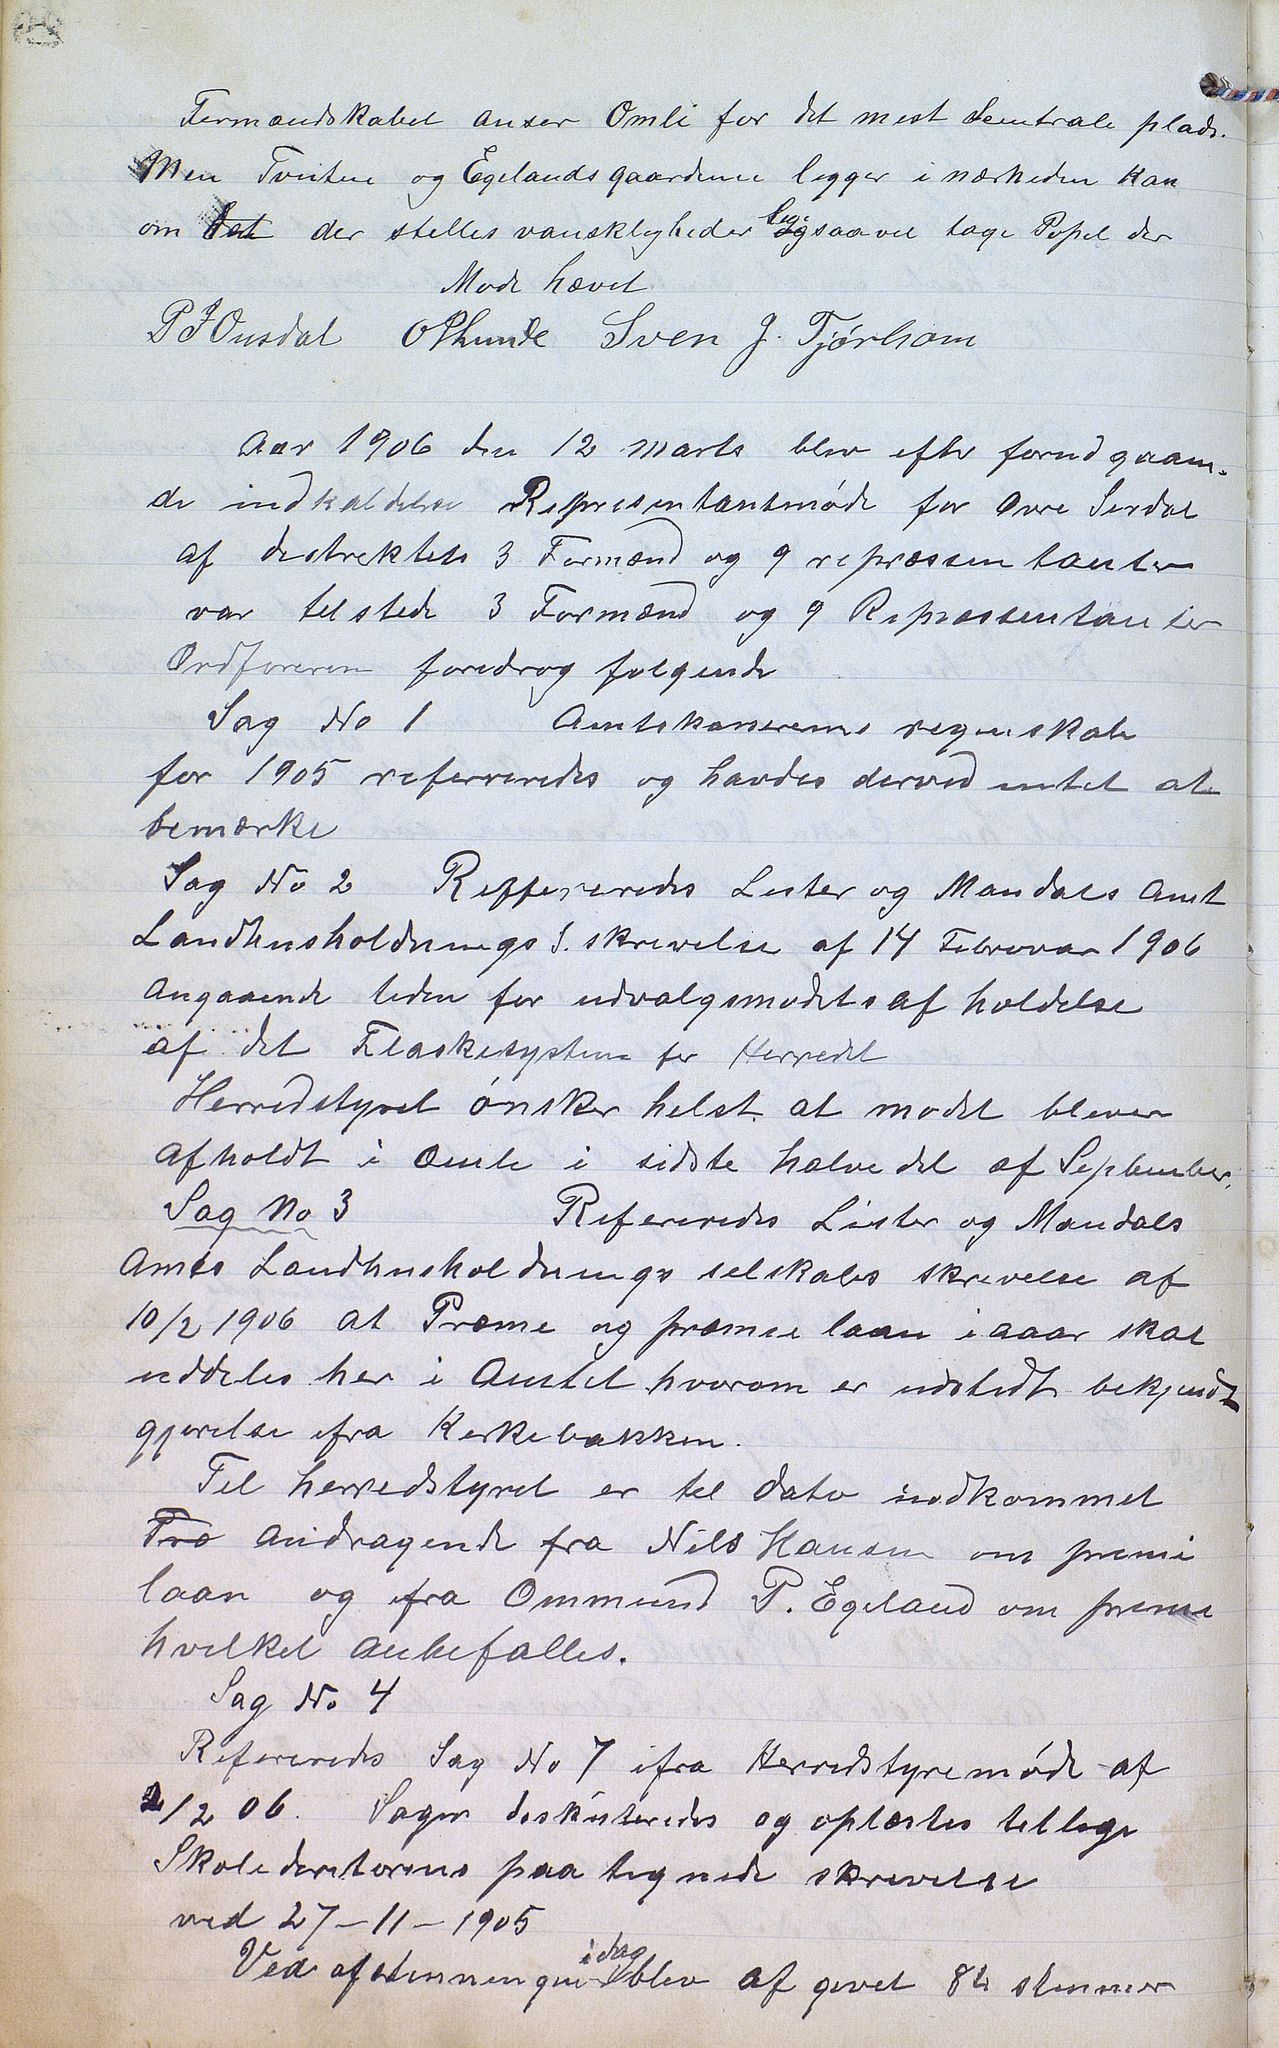 Formandskabet anser Omli for det mest Sentrale plads.
Men Tveiten og Egelandsgaardene ligger i nærheden kan
om det der stelles vanskligheder ligesaavel tage Popel der
Møde hævet
P J Ousdal O P Lunde Sven J. Tjørhom
Aar 1906 den 12 marts blev efter forudgaaen-
de indkaldelse Representantmøde for Øvre Serdal
af destrektets 3 Formænd og 9 repræssentanter
var telstede 3 Formænd og 9 Repræssentanter
Ordføreren foredrog følgende
Sag No 1 Amtskaserens regnskab
for 1905 refereredes og havdes derved intet at
bemærke
Sag No 2 Reffereredes Lister og Mandals Amt
Landhusholdnings S. skrevelse af 14 Februar 1906
angaaende tiden for udvalgsmødets afholdelse
af det Flaskesystem for Herredet
Herredstyret ønsker helst at mødet bliver
afholdt i Omli i sidste halvedel af September.
Sag No 3 Refereredes Lister og Mandals
Amts Landhusholdningsselskabs skrevelse af
10/2 1906 at Præme og præmie laan i aaar skal
uddeles her i Amtet hvorom er udstedt bekjendt
gjørelse ifra Kerkebakken.
Tel herredstyret er tel dato indkommet
Tro Andragende fra Nils Hansen om premi
laan og ifra Ommund P. Egeland om premi
hvilket anbefalles.
Sag No 4
Refereredes Sag No 7 ifra Herredstyremøde af
2/2 06. Sagen deskuteredes og oplæstes tellige
Skoledirektørens paategnede skrevelse
ved 27-11-1905
Ved afstemningen idag blev afgivet 8 stemmer